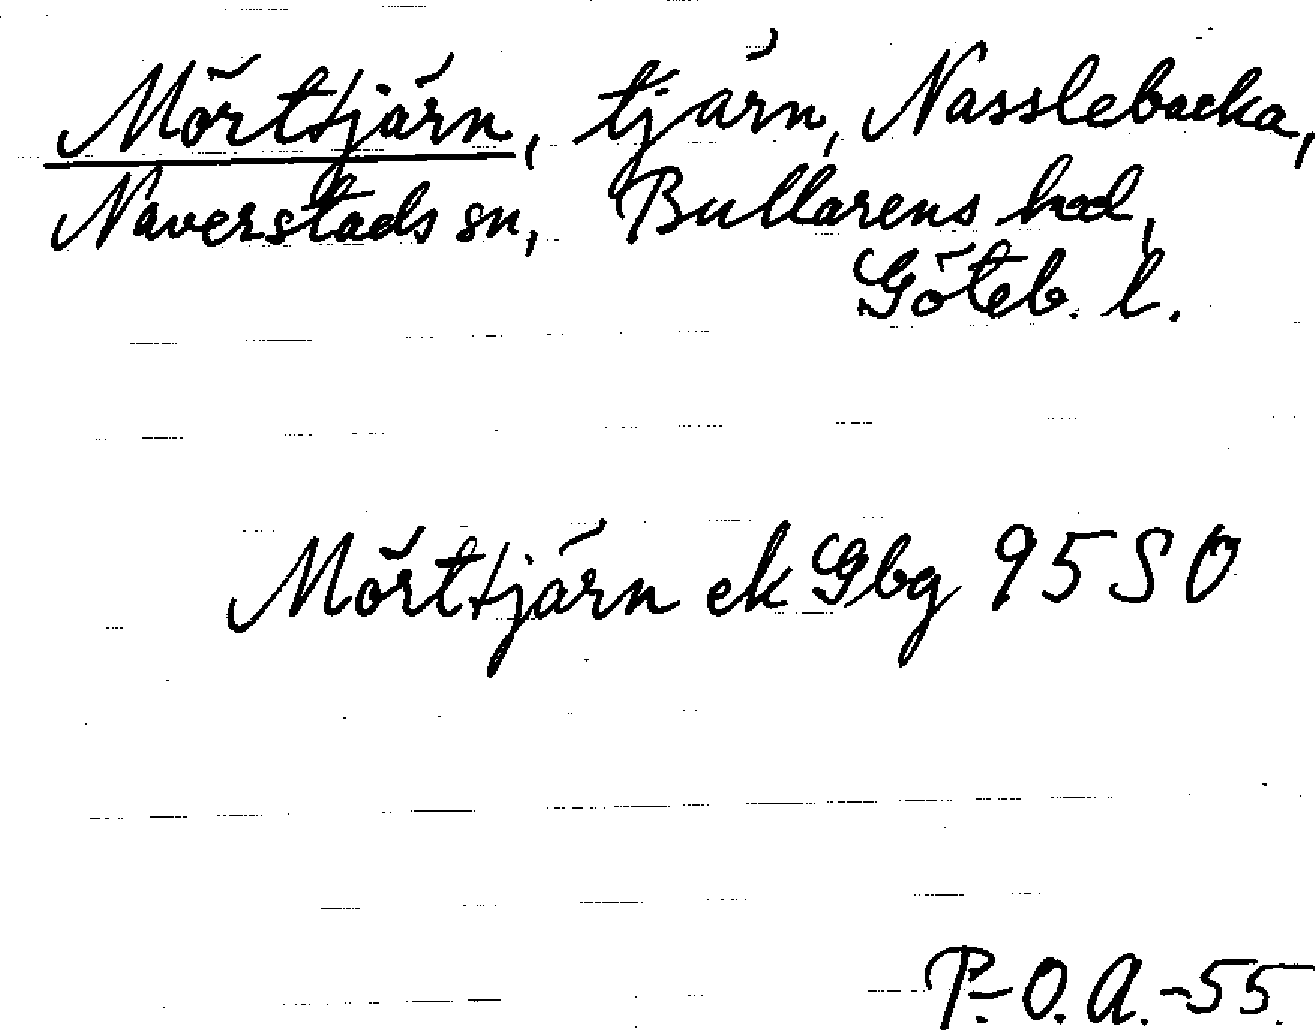 Mörttjärn, tjärn, Nasslebacka,
Naverstads sn, Bullarens hd,
Göteb. l.
Mörttjärn ek Gbg 95 SO
P.-O. A.-55.